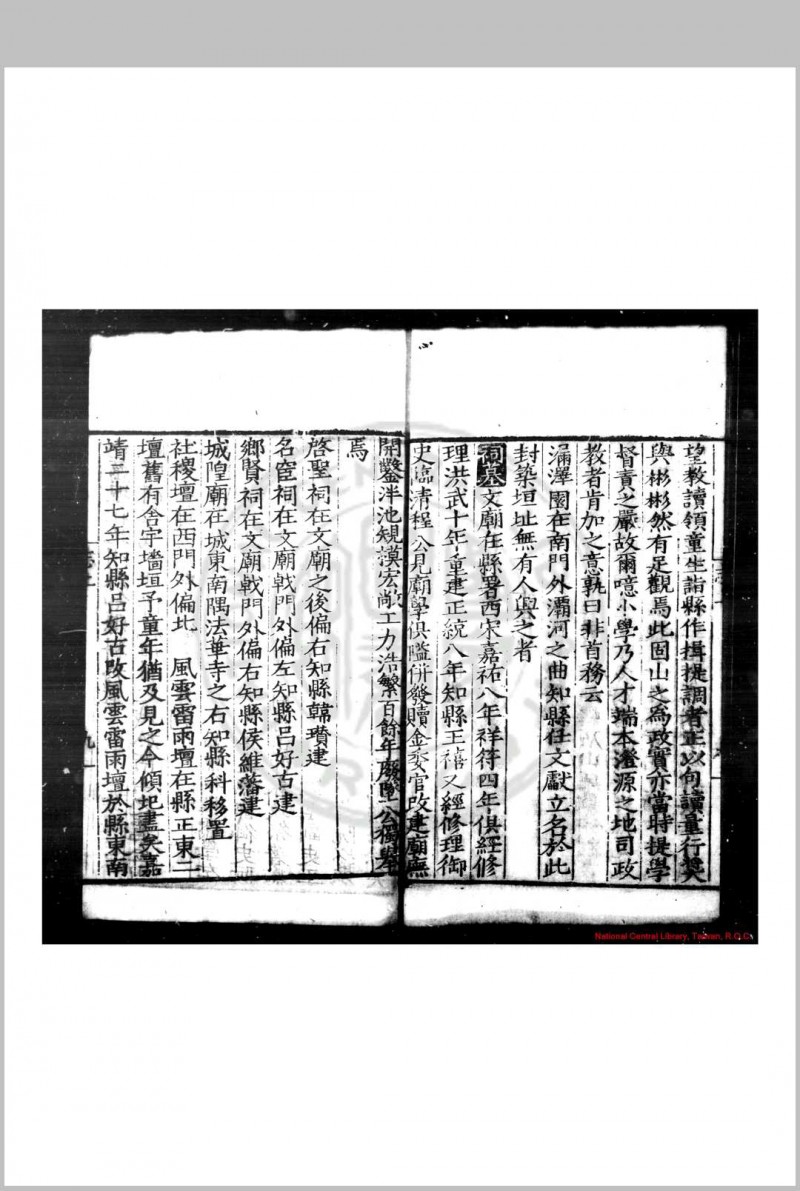 望教讀領童生詣縣作揖提調者正以句讀量行奬
與彬彬然有足觀焉此固山之為政實亦當時提學
督責之嚴故爾噫小學乃人才端本澄源之地司政
教者肯加之意孰曰非首務云
漏澤園在南門外灞河之曲知縣任文獻立名於此
封築垣址無有人與之者
祠墓文廟在縣署西宋嘉祐八年祥符四年俱經修
理洪武十年重建正統八年知縣王禧又經修理御
史臨清程公見廟學俱隘併發贖金委官改建廟無
開鑿泮池規謨宏敞工力浩繁百餘年廢墜公獨舉
焉
啓聖祠在文廟之後偏右知縣韓瓚建
名宦祠在文廟戟門外偏左知縣呂好古建
鄉賢祠在文廟戟門外偏右知縣侯維藩建
城隍廟在城東南隅法華寺之右知縣科移置
社稷壇在西門外偏北 風雲雷雨壇在縣正東二
壇舊有舍宇墻垣予童年猶及見之今傾圮盡矣嘉
靖三十七年知縣呂好古改風雲雷雨壇於縣東南
National Central Library, Taiwan, R.O.C.